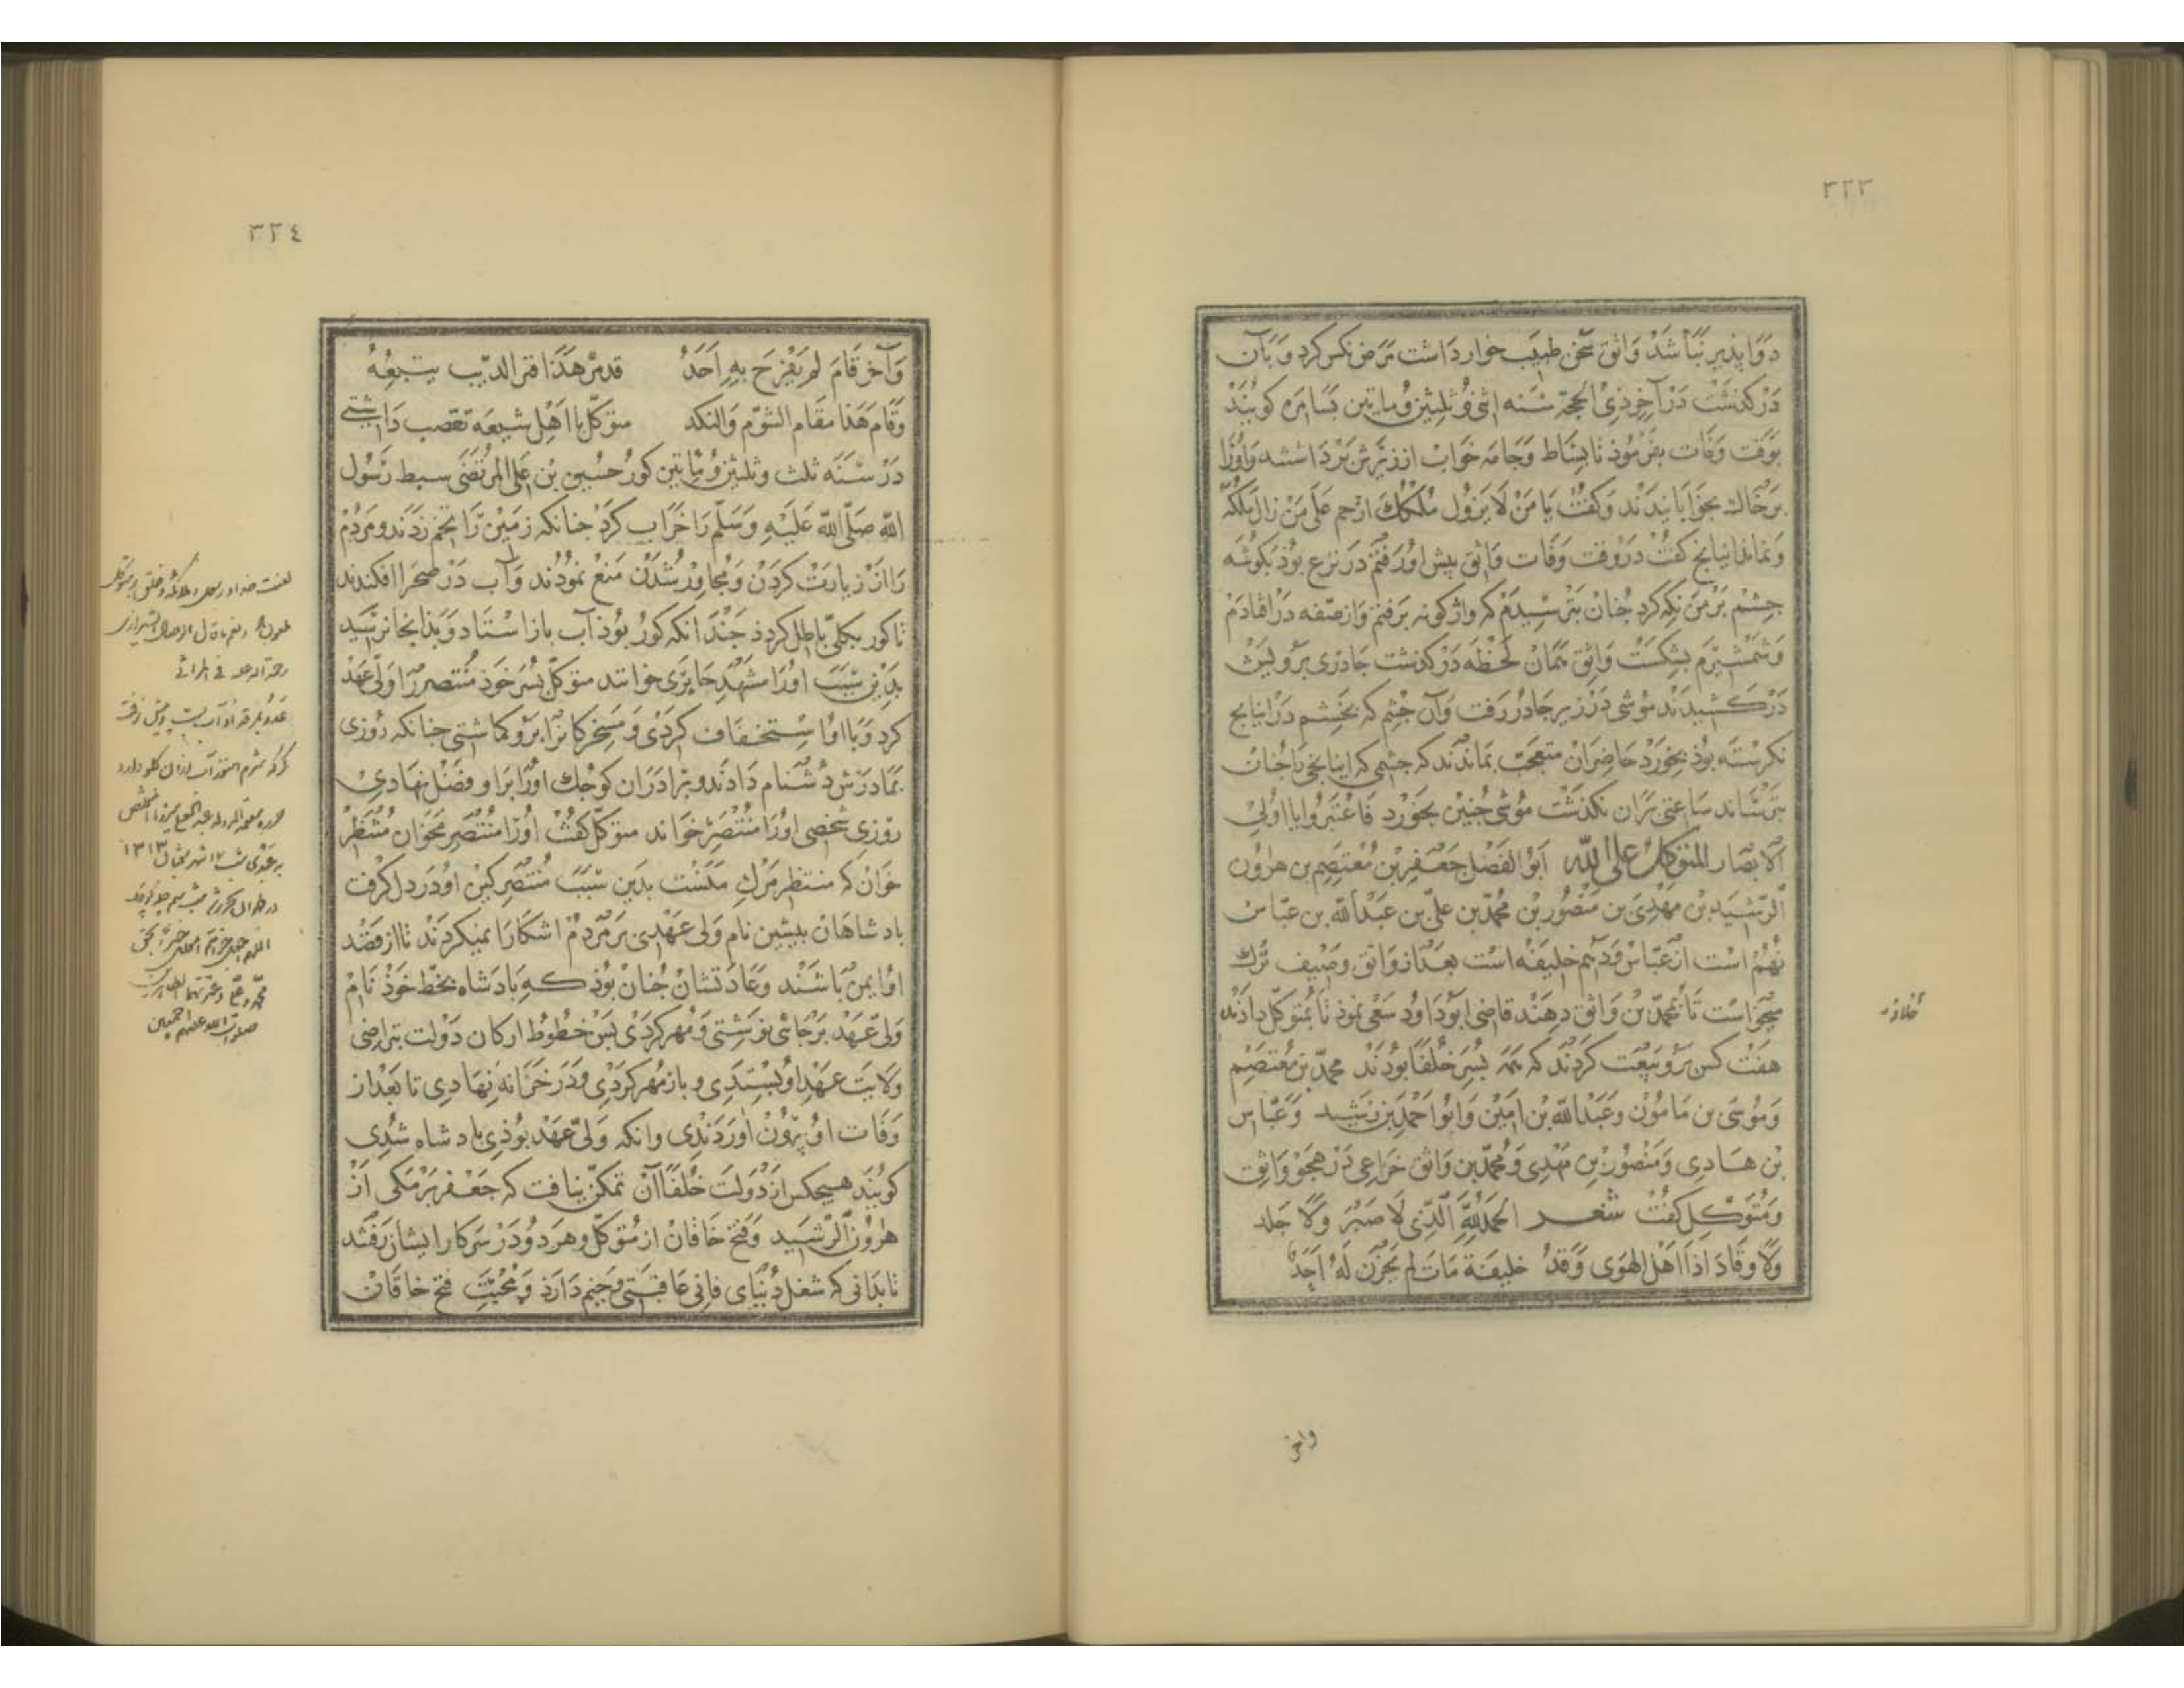 ٣٢٣
دوا پذیر نباشد واثق سخن طبیب خوار داشت مرض نکس کرد و بآن
درکذشت در آخر ذی الحجة سنه اثنی و ثلثین و ماتین بسامره کویند
بوقت وفات بفرموذ تا بساط و جامه خواب از زیرش برداشتند و اورا
بر خاك بخوابانیدند و کفت یا من لا یزول ملکك ارحم علی من زال ملکه
و نماند ایتاخ کفت در وقت وفات واثق پیش او رفتم در نزع بوذ بکوشه
چشم بر من نکه کرد چنان بترسیدم که واژکونه برفتم و از صفه در افتادم
و شمشیرم بشکست واثق همان لحظه درکذشت چادری برویش
درکشیدند موشی در زیر چادر رفت و آن چشم که بخشم در ایتاخ
نکرسته بوذ بخورد حاضران متعجب بماندند که چشمی که ایتاخ را چنان
بترساند ساعتی بران نکذشت موشی چنین بخورد فاعتبروا یا اولی
الابصار المتوکل علی الله ابو الفضل جعفر بن معتصم بن هارون
الرشید بن مهدی بن منصور بن محمد بن علی بن عبد الله بن عباس
نهم است از عباس و دهم خلیفه است بعد از واثق وصیف ترك
میخواست تا بمحمد بن واثق دهند قاضی ابو داود سعی نموذ تا بمتوکل دادند
هفت کس برو بیعت کردند که همه پسر خلفا بودند محمد بن معتصم
و موسی بن مامون و عبد الله بن امین و ابو احمد بن رشید و عباس
بن هادی و منصور بن مهدی و محمد بن واثق خزاعی در هجو واثق
و متوکل کفت شعر الحمد لله الذی لا صبر ولا جلد
ولا وقاد اذا اهل الهوی وقد خلیفة مات لم یحزن له احد
واخر
٣٢٤
وآخر قام لم یفرح به احد قد مر هذا فمر الذیب یتبعه
وقام هذا مقام الشوم والنکد متوکل با اهل شیعه تعصب داشتی
در سنه ثلث و ثلثین و ماتین کور حسین بن علی المرتضی سبط رسول
الله صلی الله علیه وسلم را خراب کرد چنانکه زمین را تخم زدند و مردم
را از زیارت کردن و مجاور شدن منع نمودند و آب در صحرا افکندند
تا کور بکلی باطل کردذ چندانکه کور بوذ آب باز استاد و بذانجا نرسید
بدین سبب اورا مشهد حایری خوانند متوکل پسر خوذ منتصر را ولی عهد
کرد و با او استخفاف کردی و مسخرکان را برو کماشتی چنانکه روزی
بمادرش دشنام دادند و برادران کوچك اورا برا و فضل نهادی
روزی شخصی اورا منتصر خواند متوکل کفت اورا منتصر مخوان منتظر
خوان که منتظر مرك منست بدین سبب منتصر کین او در دل کرفت
پادشاهان پیشین نام ولی عهدی بر مردم اشکارا نمیکردند تا از قصد
او ایمن باشند و عادتشان چنان بوذ که پادشاه بخط خوذ نام
ولی عهد بر جائی نوشتی و مهر کردی پس خطوط ارکان دولت بتراضی
ولایت عهد او بستدی و باز مهر کردی و در خزانه نهادی تا بعد از
وفات او بیرون آوردندی و انکه ولی عهد بوذی پادشاه شدی
کویند هیچکس از دولت خلفا آن تمکن نیافت که جعفر برمکی از
هارون الرشید و فتح خاقان از متوکل و هر دو در سر کار ایشان رفتند
تا بدانی که شغل دنیای فانی عاقبتی وخیم دارد و محبت فتح خاقان
رحمة الله علیه فی المراثی
صلوات الله علیهم اجمعین